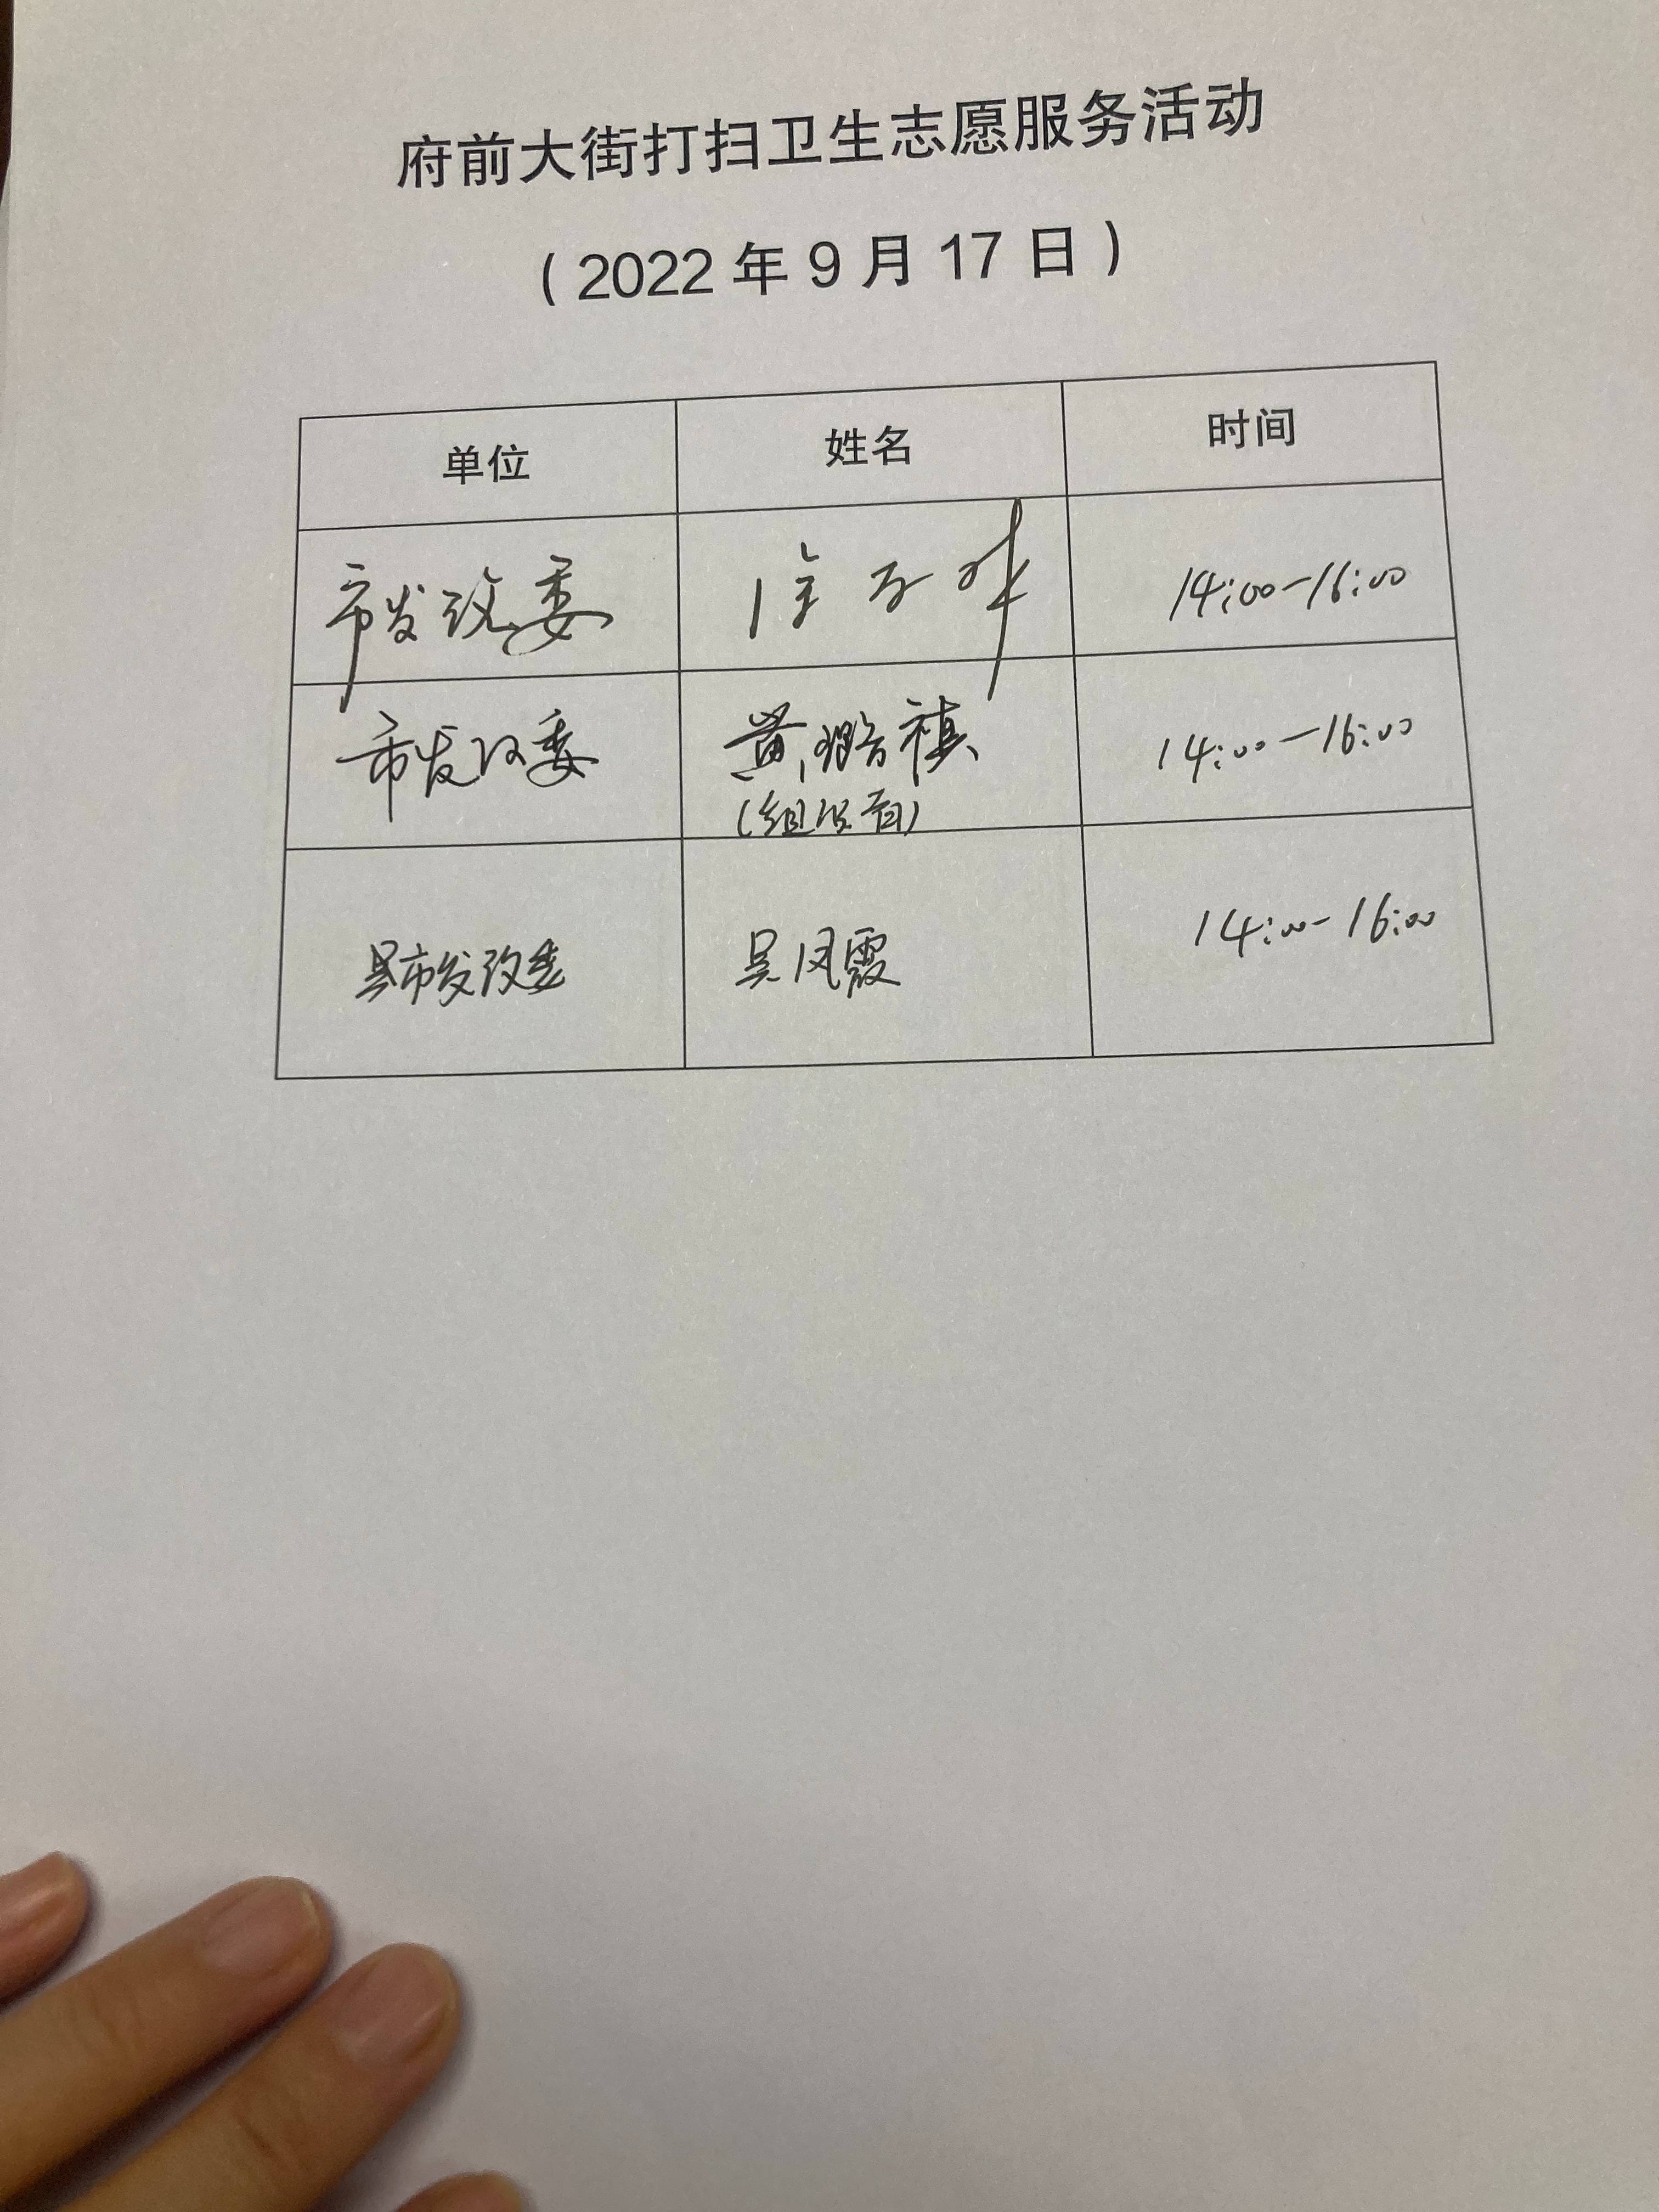 府前大街打扫卫生志愿服务活动
(2022年9月17日)
单位 姓名 时间
市发改委 14:00-16:00
市发改委 黄璐禛 14:00-16:00
市发改委 吴凤霞 14:00-16:00